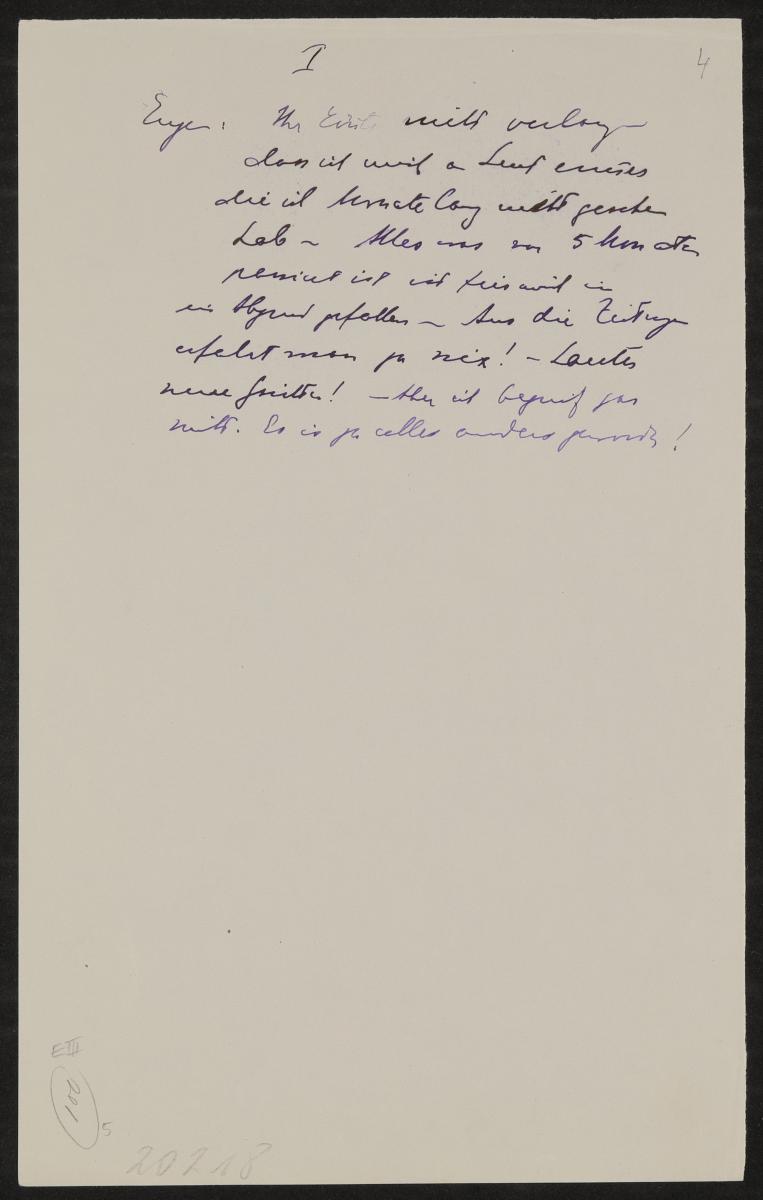 I
4
Eugen: Ihr nicht verlangen
dass ich mich an Leut erinner
die ich Monate lang nicht gesehen
hab – Alles was vor 5 Monaten
passiert ist ist für mich in
ein Abgrund gefallen – Aus die Zeitungen
erfahrt man ja nix! – Lauter
neue! – Aber ich begreif gar
nicht. Es is ja alles anders geworden!
E III
201
5
20218